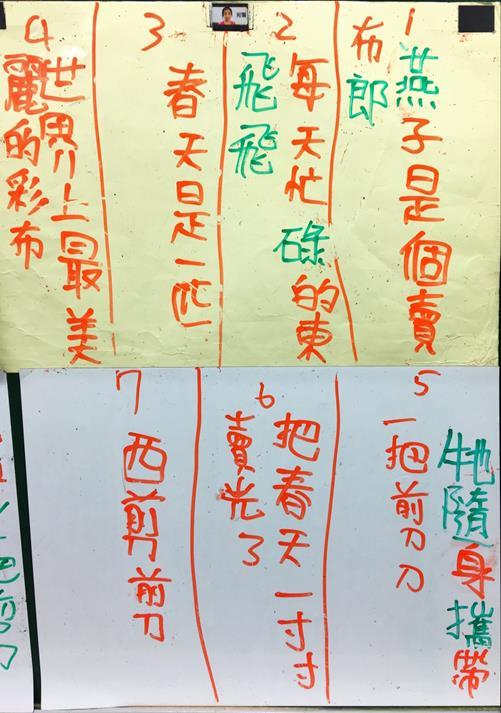 1
燕子是個賣
布郎
2
每天忙碌的東
飛飛
3
春天是一匹
4
世界上最美
麗的彩布
5
牠隨身攜帶
一把剪刀
6
把春天一寸寸
賣光了
7
西剪剪